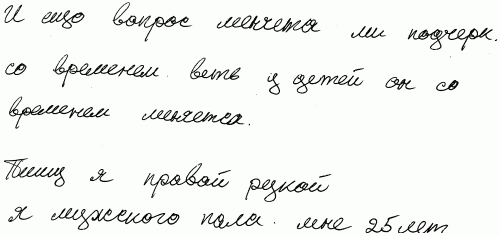 И ещо вопрос менчета ли подчерк.
со временем. веть у детей он со
временем менчетса.
Пишу я правай рукой
я мужского пала. мне 25 лет